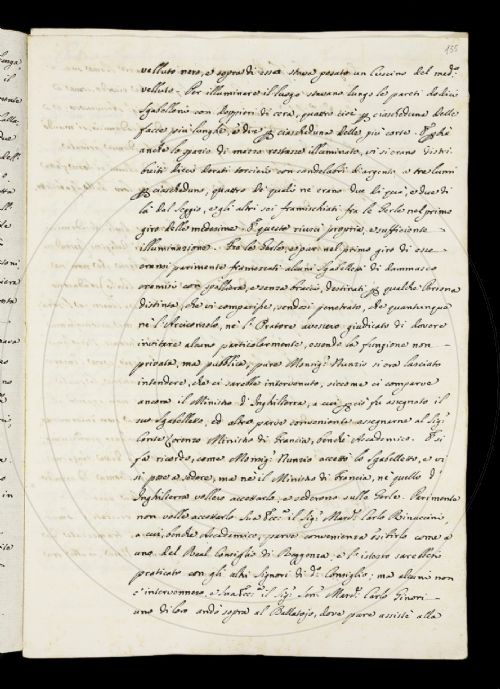 155
velluto nero, e sopra di essa stava posato un Cuscino del med.º
velluto. Per illuminare il luogo stavano lungo le pareti dodici
Sgabelloni con doppieri di cera, quattro cioè p ciascheduna delle
facce più lunghe, e due p ciascheduna delle più corte. E p chè
anche lo spazio di mezzo restasse illuminato, vi si erano distri-
buiti dieci dorati torcieri con candelabri d'argento a tre lumi
p ciascheduno, quattro de' quali ne erano due di quà, e due di
là dal Seggio, e gli altri sei framischiati fra le Gerle nel primo
giro delle medesime. E questa riuscì propria, e sufficiente
illuminazione. Fra le Gerle, e pur nel primo giro di esse
eransi parimente frammessi alcuni Sgabelletti di dommasco
cremisi con spalliera, e senza bracci, destinati p qualche Persona
distinta, che vi comparisse, sendosi penetrato, che quantunque
nè l'Arciconsolo, nè l'Oratore avessero giudicato di dovere
invitare alcuno particolarmente, essendo la funzione non
privata, ma pubblica, pure Monsig.r Nunzio si era lasciato
intendere, che ci sarebbe intervenuto, siccome ci comparve
ancora il Ministro d'Inghilterra, a cui p ciò fu assegnato il
suo Sgabelletto, ed altro parve conveniente assegnarne al Sig.r
Conte Lorenzi Ministro di Francia, benchè Accademico. E si
fa ricordo, come Monsig.r Nunzio accettò lo Sgabelletto, e vi
si pose a sedere, ma nè il Ministro di Francia, nè quello d'
Inghilterra vollero accettarlo, e sederono sulle Gerle. Parimente
non volle accettarlo Sua Ecc.za il Sig.r March. Carlo Rinuccini,
a cui, benchè Accademico, parve convenienza esibirlo come a
uno del Real Consiglio di Reggenza, e l'istesso sarebbesi
praticato con gli altri Signori di d.º Consiglio; ma alcuno non
c'intervennero, e Sua Ecc.za il Sig.r Sen.r March. Carlo Ginori
uno di loro andò sopra al Ballatojo, dove pure assistè alla